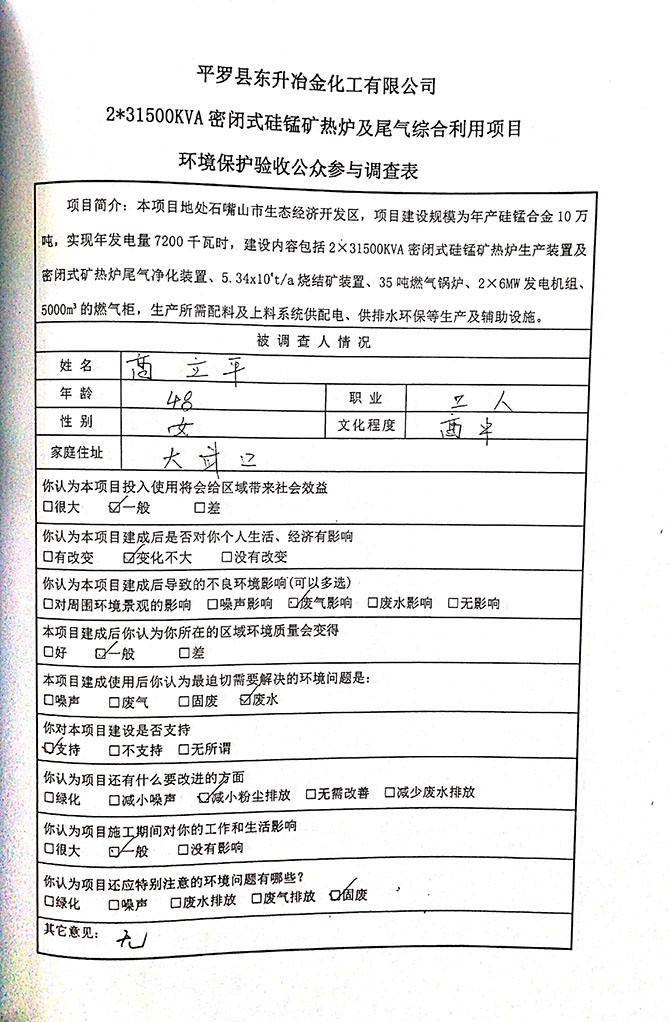 平罗县东升冶金化工有限公司
2*31500KVA 密闭式硅锰矿热炉及尾气综合利用项目
环境保护验收公众参与调查表
项目简介：本项目地处石嘴山市生态经济开发区，项目建设规模为年产硅锰合金 10 万
吨，实现年发电量 7200 千瓦时，建设内容包括 2×31500KVA 密闭式硅锰矿热炉生产装置及
密闭式矿热炉尾气净化装置、5.34x10⁴t/a 烧结矿装置、35 吨燃气锅炉、2×6MW 发电机组、
5000m³ 的燃气柜，生产所需配料及上料系统供配电、供排水环保等生产及辅助设施。
被 调 查 人 情 况
姓 名 高 立 平
年 龄 48 职 业 工 人
性 别 女 文化程度 高中
家庭住址 大 武 口
你认为本项目投入使用将会给区域带来社会效益
□很大 ☑一般 □差
你认为本项目建成后是否对你个人生活、经济有影响
□有改变 ☑变化不大 □没有改变
你认为本项目建成后导致的不良环境影响(可以多选)
□对周围环境景观的影响 □噪声影响 ☑废气影响 □废水影响 □无影响
本项目建成后你认为你所在的区域环境质量会变得
□好 ☑一般 □差
本项目建成使用后你认为最迫切需要解决的环境问题是:
□噪声 □废气 □固废 ☑废水
你对本项目建设是否支持
☑支持 □不支持 □无所谓
你认为项目还有什么要改进的方面
□绿化 □减小噪声 ☑减小粉尘排放 □无需改善 □减少废水排放
你认为项目施工期间对你的工作和生活影响
□很大 ☑一般 □没有影响
你认为项目还应特别注意的环境问题有哪些?
□绿化 □噪声 □废水排放 □废气排放 ☑固废
其它意见: 无